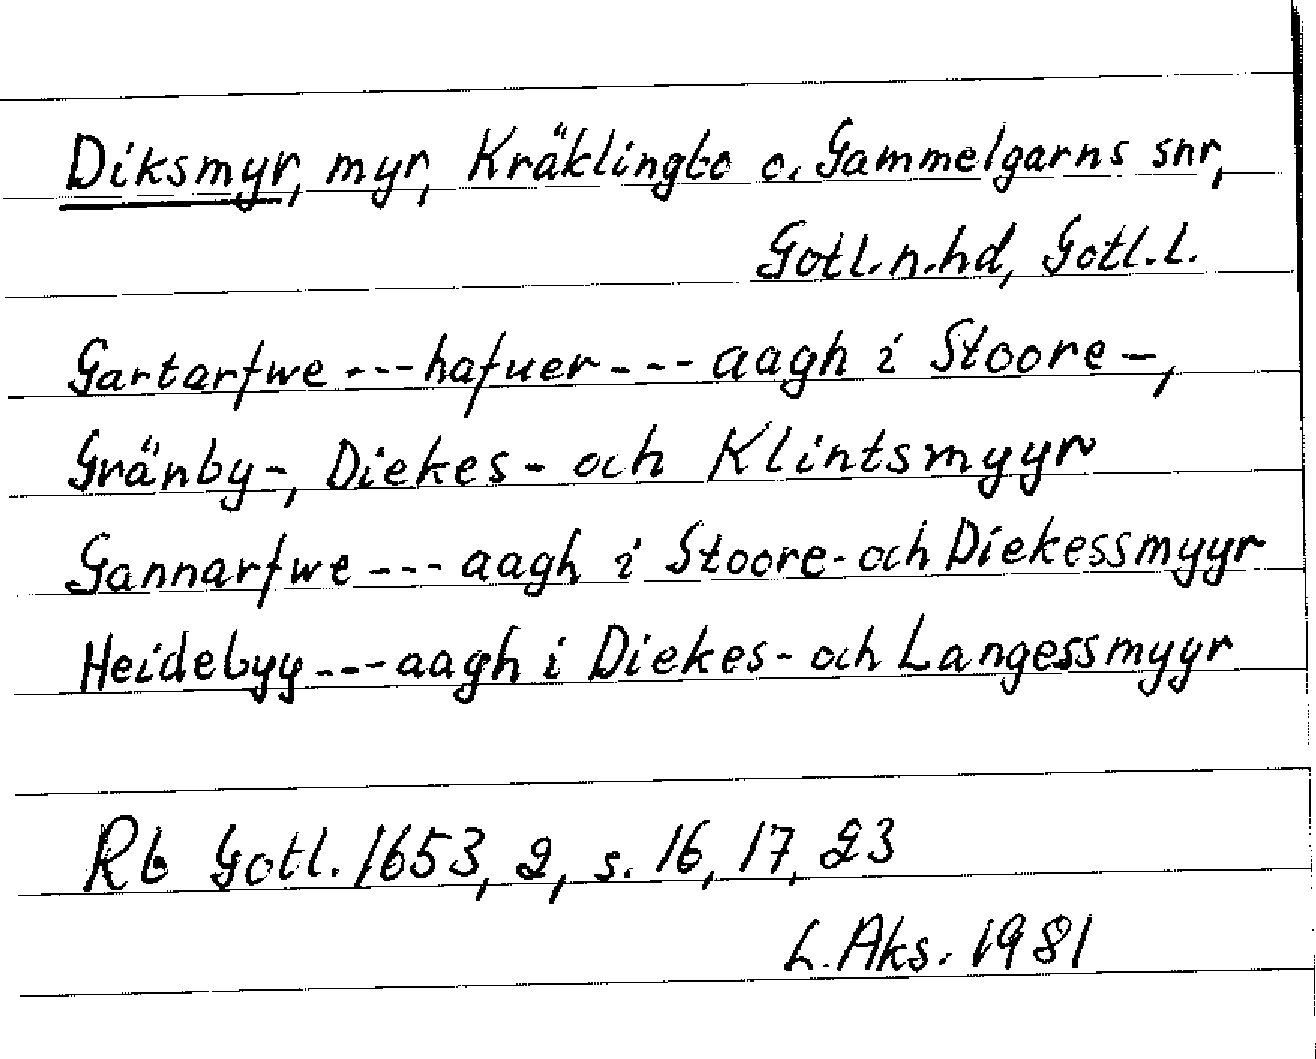 Diksmyr, myr, Kräklingbo o. Gammelgarns snr,
Gotl.n.hd, Gotl.l.
Gartarfwe --- hafuer --- aagh i Stoore-,
Gränby-, Diekes- och Klintsmyyr
Gannarfwe --- aagh i Stoore- och Diekessmyyr
Heidebyy --- aagh i Diekes- och Langessmyyr
Rb Gotl. 1653, 2, s. 16, 17, 23
L. Aks. 1981